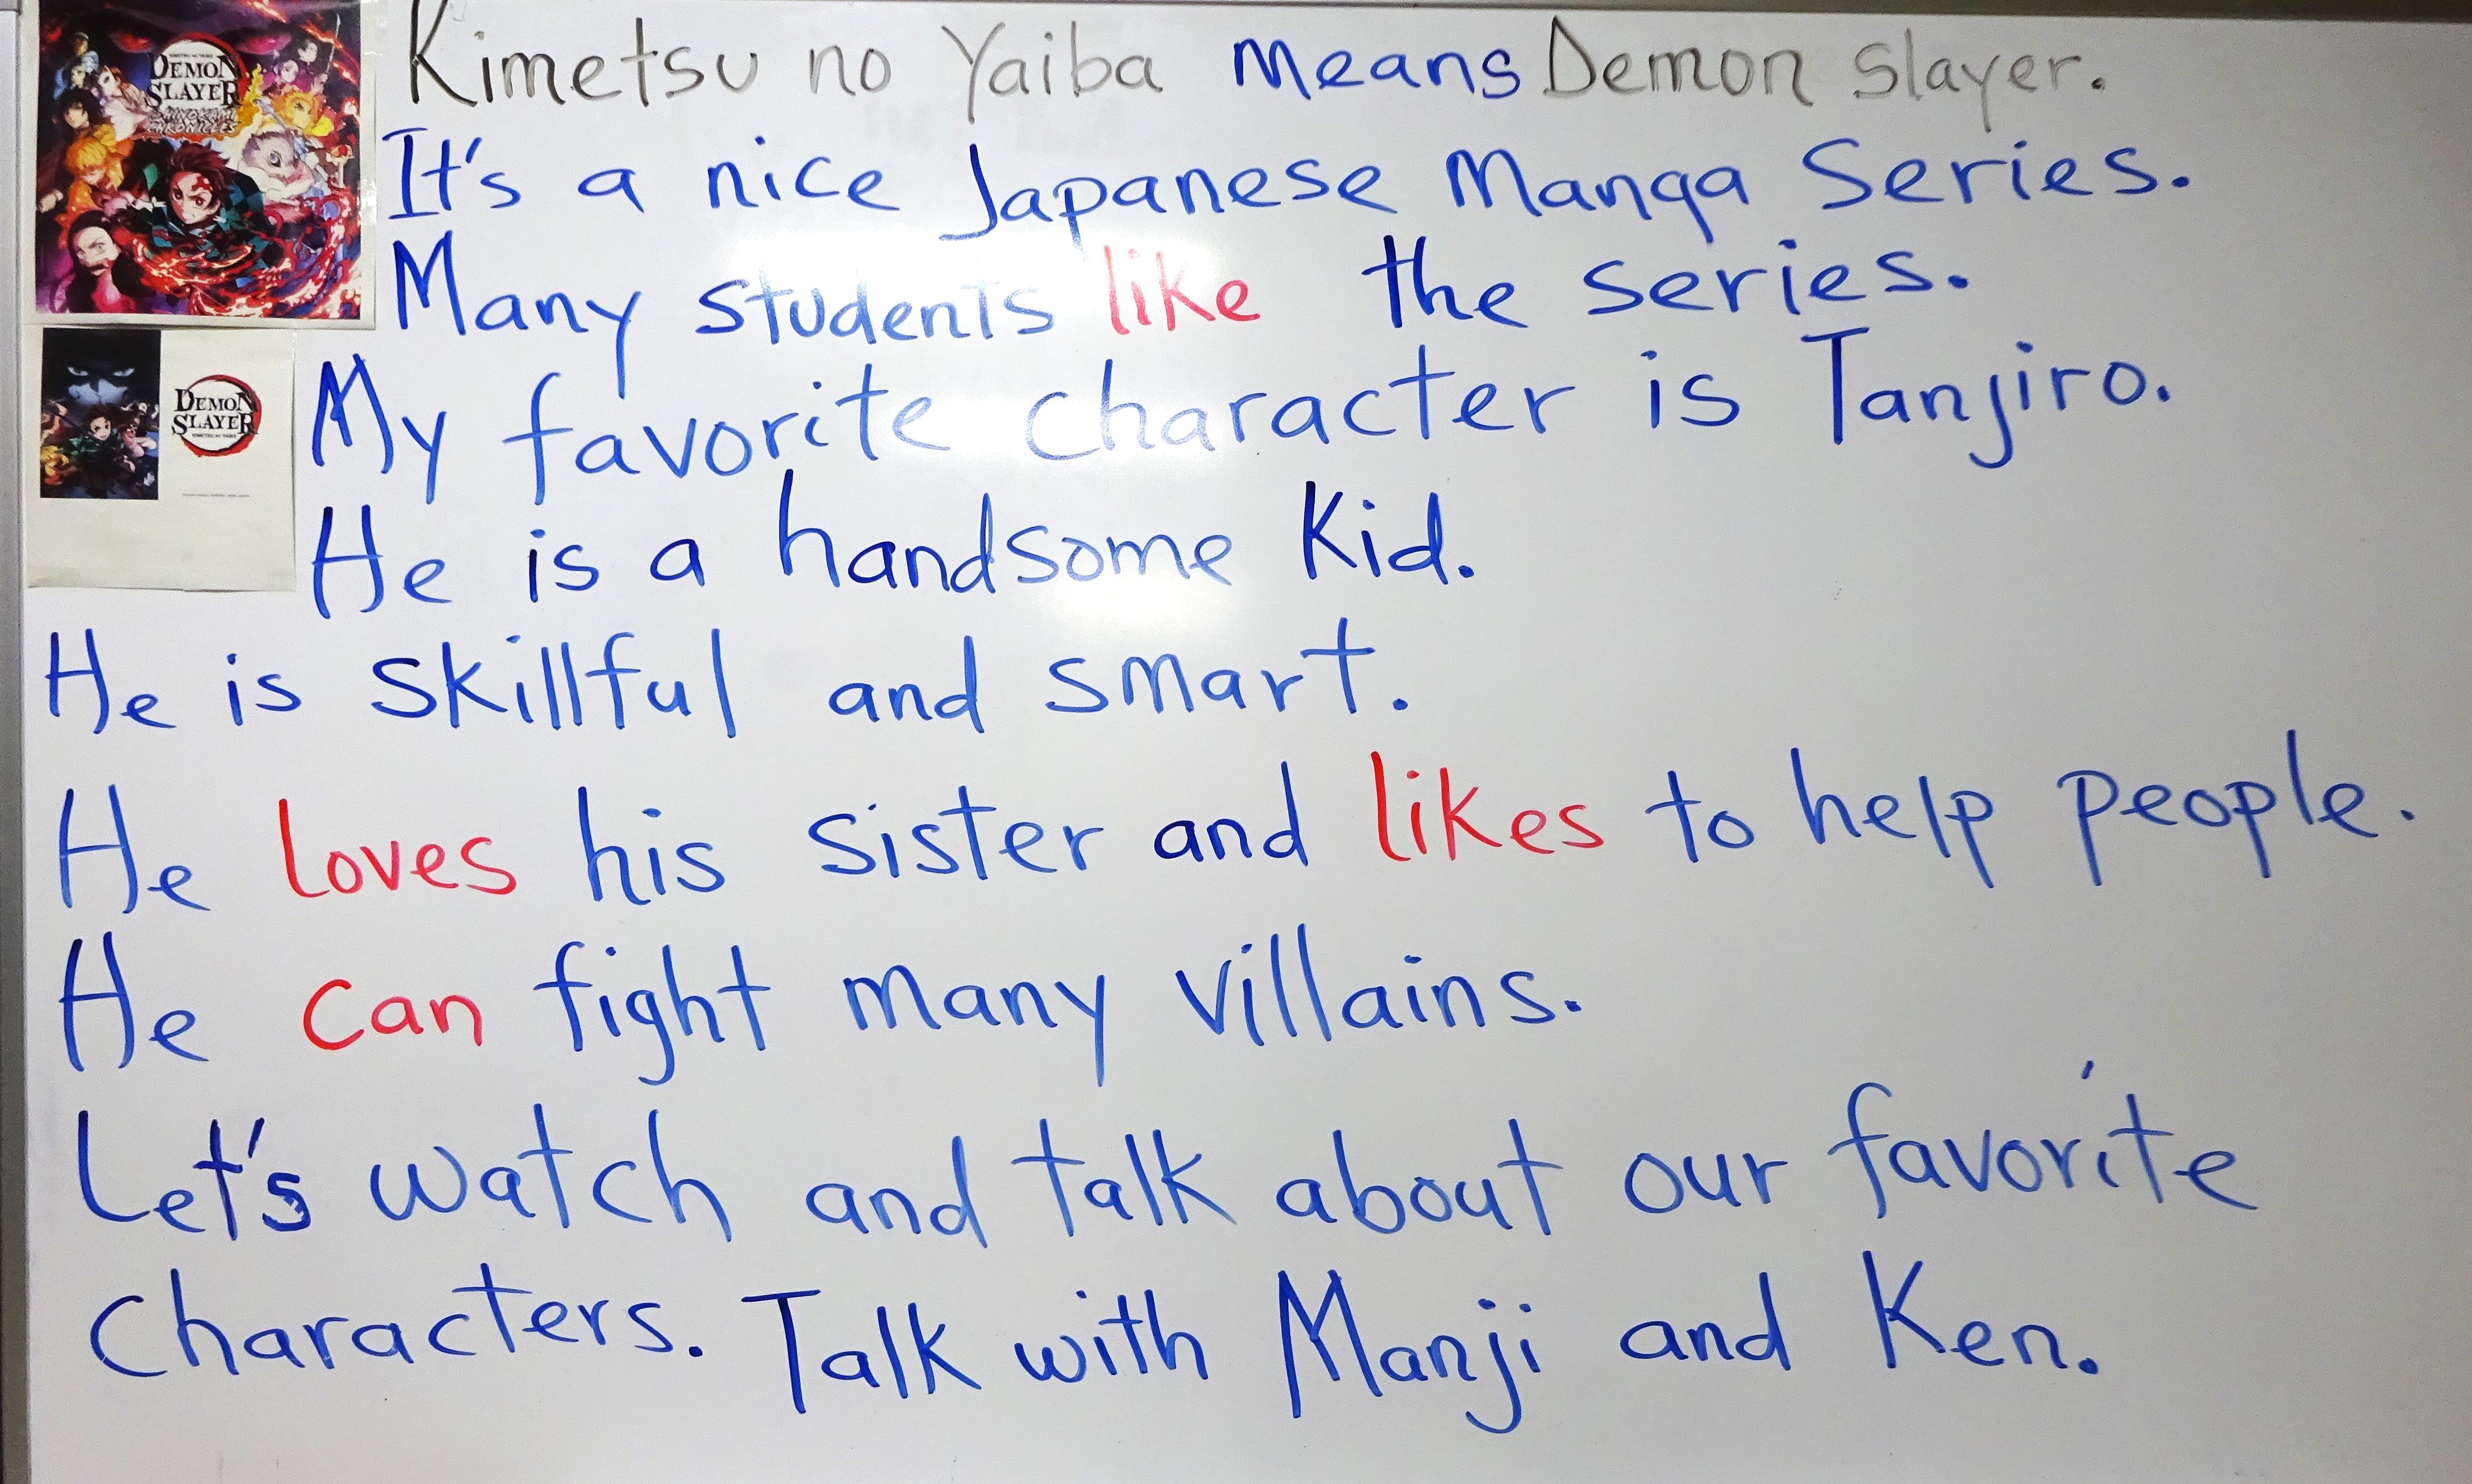 DEMON
SLAYER
Kimetsu no Yaiba means Demon Slayer.
It's a nice Japanese Manga Series.
Many students like the series.
DEMON
SLAYER
My favorite character is Tanjiro.
He is a handsome kid.
He is skillful and smart.
He loves his sister and likes to help people.
He can fight many villains.
Let's watch and talk about our favorite
characters. Talk with Manji and Ken.